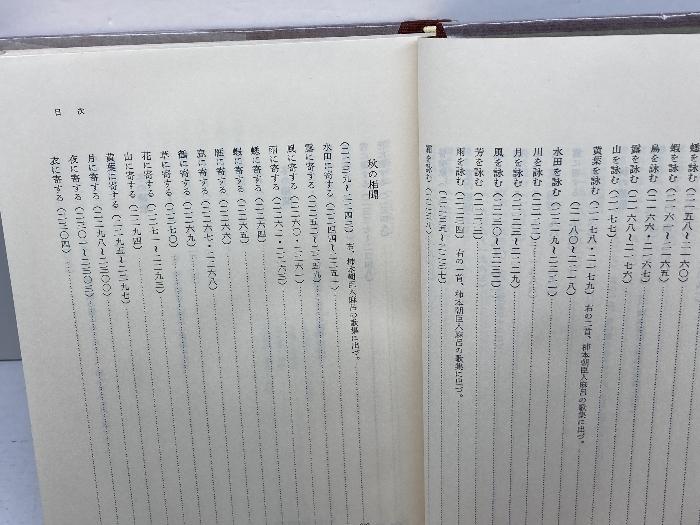 蟋を詠む（二一五八～二一六〇）
蝦を詠む（二一六一～二一六五）
鳥を詠む（二一六六・二一六七）
露を詠む（二一六八～二一七六）
山を詠む（二一七七）
黄葉を詠む（二一七八・二一七九）右の二首、柿本朝臣人麻呂の歌集に出づ。
（二一八〇～二二一八）
水田を詠む（二二一九～二二二一）
川を詠む（二二二二）
月を詠む（二二二三～二二二九）
風を詠む（二二三〇～二二三二）
芳を詠む（二二三三）
雨を詠む（二二三四）右の一首、柿本朝臣人麻呂の歌集に出づ。
（二二三五～二二三七）
霜を詠む（二二三八）
秋の相聞
（二二三九～二二四三）右、柿本朝臣人麻呂の歌集に出づ。
水田に寄する（二二四四～二二五一）
露に寄する（二二五二～二二五九）
風に寄する（二二六〇・二二六一）
雨に寄する（二二六二・二二六三）
蟋に寄する（二二六四）
蝦に寄する（二二六五）
雁に寄する（二二六六）
鹿に寄する（二二六七・二二六八）
鶴に寄する（二二六九）
草に寄する（二二七〇）
花に寄する（二二七一～二二九三）
山に寄する（二二九四）
黄葉に寄する（二二九五～二二九七）
月に寄する（二二九八～二三〇〇）
夜に寄する（二三〇一～二三〇三）
衣に寄する（二三〇四）
目次